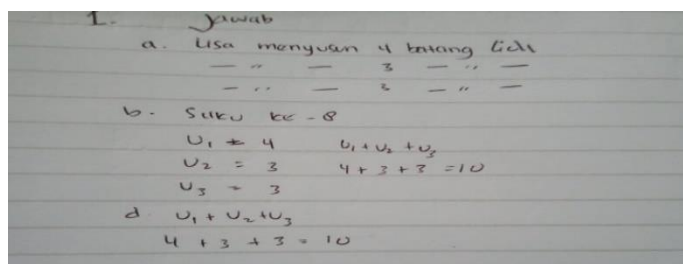 1. Jawab
a. Lisa menyusun 4 batang lidi
— " — 3 — " —
— " — 3 — " —
b. Suku ke - 8
U₁ = 4 U₁ + U₂ + U₃
U₂ = 3 4 + 3 + 3 = 10
U₃ = 3
d. U₁ + U₂ + U₃
4 + 3 + 3 = 10